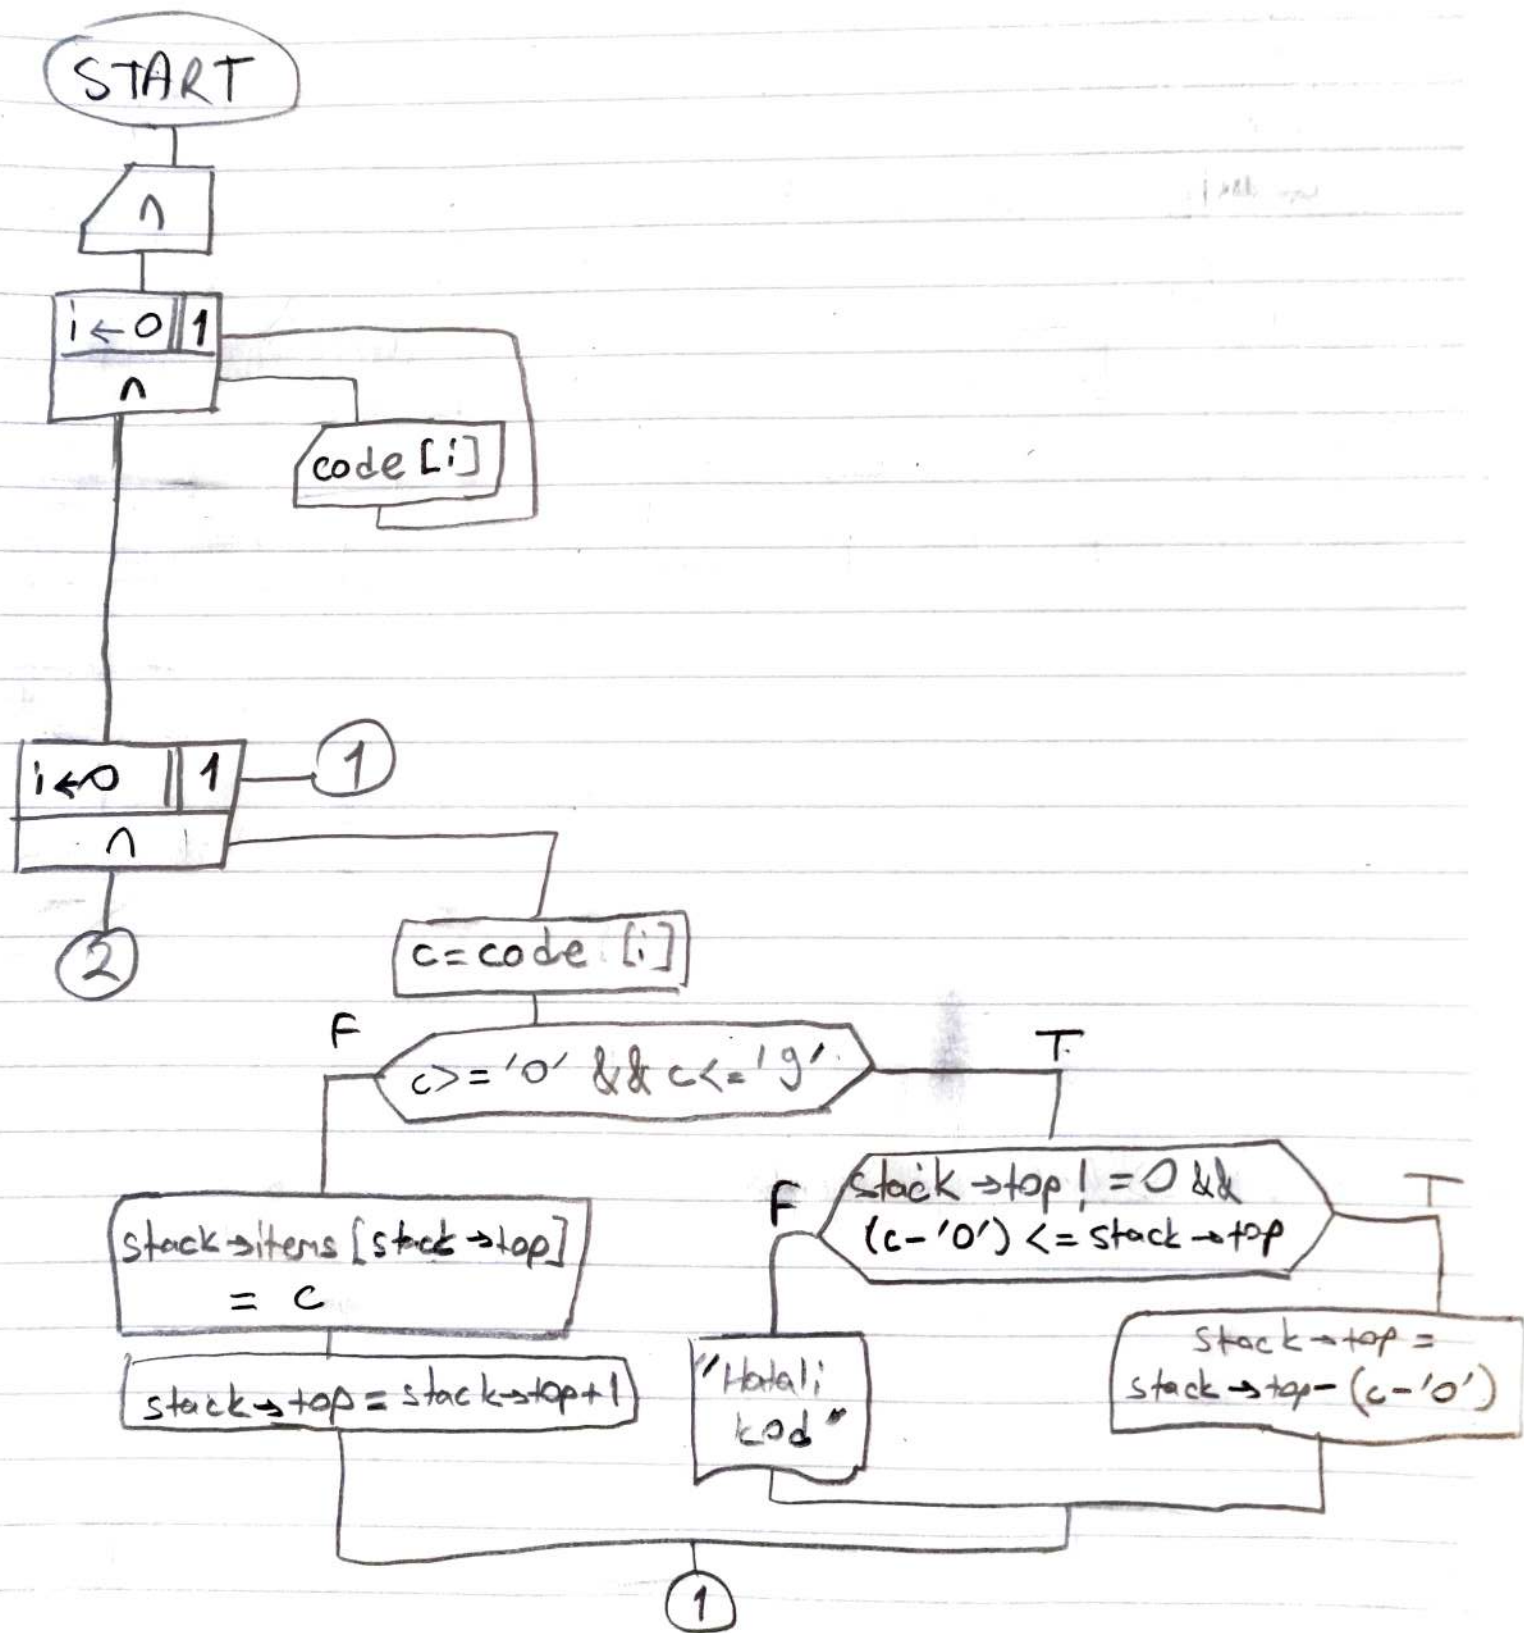 START
n
i ← 0 1
n
code [i]
i ← 0 1
1
n
2
c = code [i]
F
T
c >= '0' && c <= '9'
F
stack → top ! = 0 &&
(c - '0') <= stack → top
T
stack → items [stack → top]
= c
stack → top = stack → top + 1
"Hatali
kod"
stack → top =
stack → top - (c - '0')
1